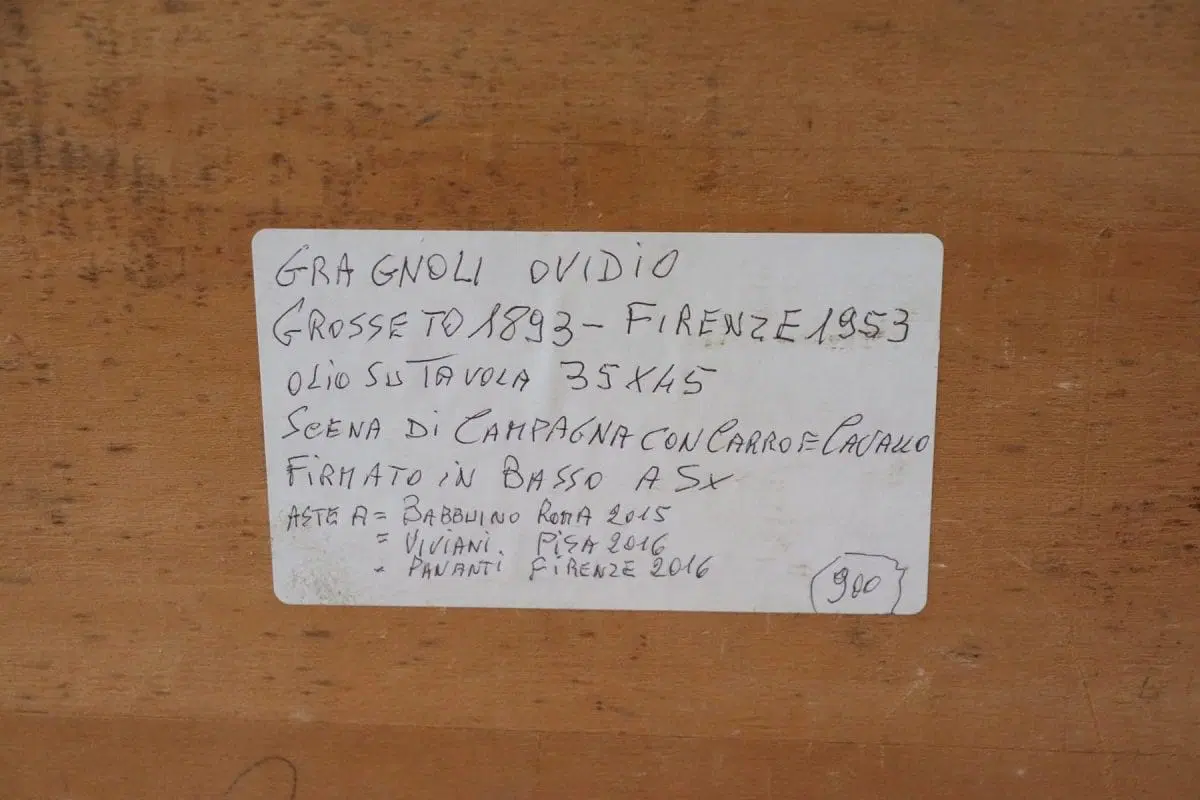 GRAGNOLI OVIDIO
GROSSETO 1893 - FIRENZE 1953
OLIO SU TAVOLA 35X45
SCENA DI CAMPAGNA CON CARRO E CAVALLO
FIRMATO IN BASSO A Sx
ASTE A = BABBUINO ROMA 2015
= VIVIANI. PISA 2016
- PANANTI FIRENZE 2016
900